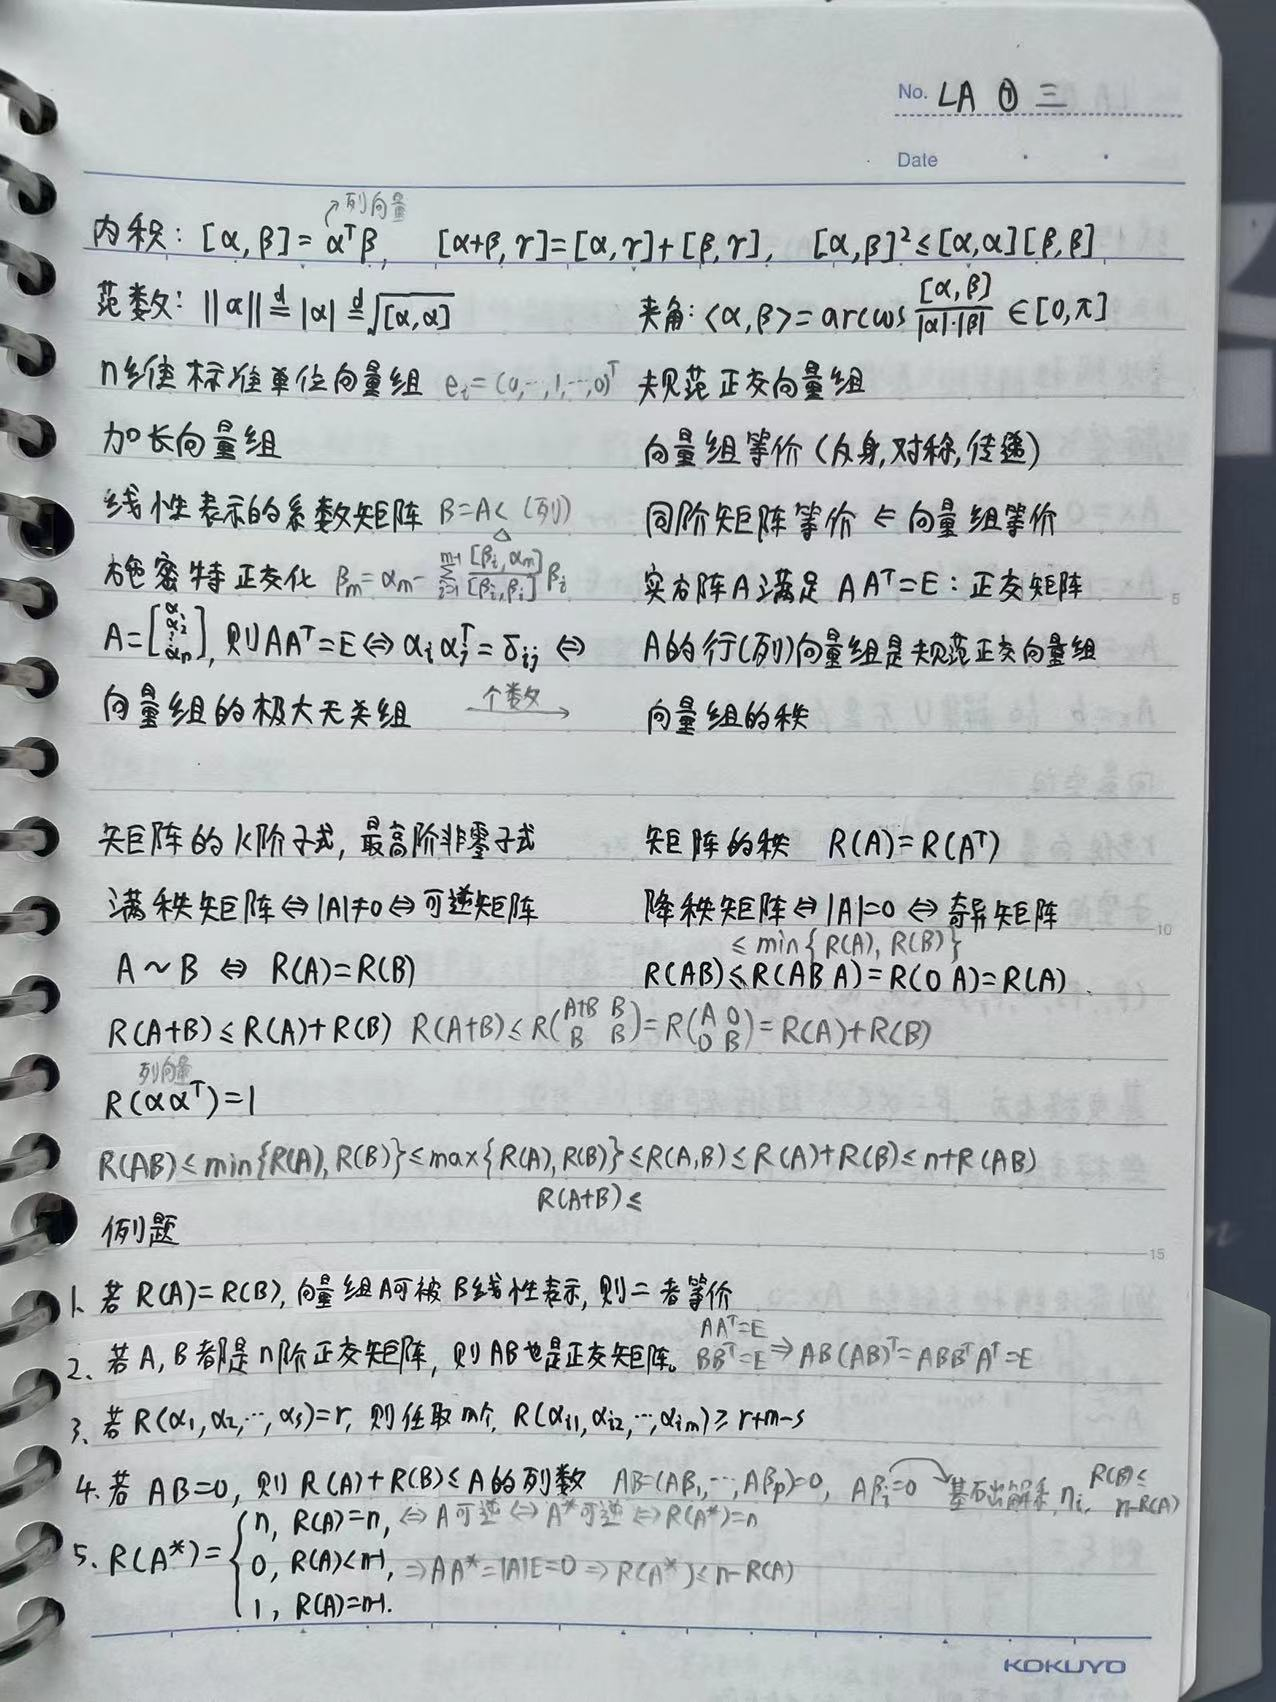 No. LA ⑪ 三
Date
列向量
内积: [α, β] = αᵀβ, [α+β, γ] = [α, γ] + [β, γ], [α, β]² ≤ [α, α][β, β]
范数: ||α|| ≝ |α| ≝ √[α, α] 夹角: <α, β> = arccos [α, β]/|α|·|β| ∈ [0, π]
n维标准单位向量组 eᵢ = (0, ···, 1, ···, 0)ᵀ 规范正交向量组
加长向量组 向量组等价 (反身, 对称, 传递)
线性表示的系数矩阵 B = A (列) 同阶矩阵等价 ⇐ 向量组等价
密特正交化 βₘ = αₘ - Σᵢ₌₁ᵐ⁻¹ [βᵢ, αₘ]/[βᵢ, βᵢ] βᵢ 实方阵A满足 AAᵀ = E: 正交矩阵
A = [α₁ α₂ ⋮ αₙ], 则AAᵀ = E ⇔ αᵢαⱼᵀ = δᵢⱼ ⇔ A的行(列)向量组是规范正交向量组
向量组的极大无关组 个数→ 向量组的秩
矩阵的k阶子式, 最高阶非零子式 矩阵的秩 R(A) = R(Aᵀ)
满秩矩阵 ⇔ |A| ≠ 0 ⇔ 可逆矩阵 降秩矩阵 ⇔ |A| = 0 ⇔ 奇异矩阵
≤ min{R(A), R(B)}
A ~ B ⇔ R(A) = R(B) R(AB) ≤ R(AB A) = R(0 A) = R(A)
R(A+B) ≤ R(A) + R(B) R(A+B) ≤ R(A+B B B B) = R(A 0 0 B) = R(A) + R(B)
列向量
R(ααᵀ) = 1
R(AB) ≤ min{R(A), R(B)} ≤ max{R(A), R(B)} ≤ R(A, B) ≤ R(A) + R(B) ≤ n + R(AB)
R(A+B) ≤
例题
1. 若 R(A) = R(B), 向量组A可被B线性表示, 则二者等价
AAᵀ = E
2. 若A, B都是n阶正交矩阵, 则AB也是正交矩阵。 BBᵀ = E ⇒ AB(AB)ᵀ = ABBᵀAᵀ = E
3. 若R(α₁, α₂, ···, αₛ) = r, 则任取m个, R(αᵢ₁, αᵢ₂, ···, αᵢₘ) ≥ r+m-s
4. 若 AB = 0, 则 R(A) + R(B) ≤ A的列数 AB = (Aβ₁, ···, Aβₚ) = 0, Aβᵢ = 0 基础解系 ηᵢ, R(B) ≤ n-R(A)
5. R(A*) = { n, R(A) = n, ⇔ A可逆 ⇔ A*可逆 ⇔ R(A*) = n
0, R(A) < n-1, ⇒ AA* = |A|E = 0 ⇒ R(A*) ≤ n-R(A)
1, R(A) = n-1.
5
10
15
KOKUYO